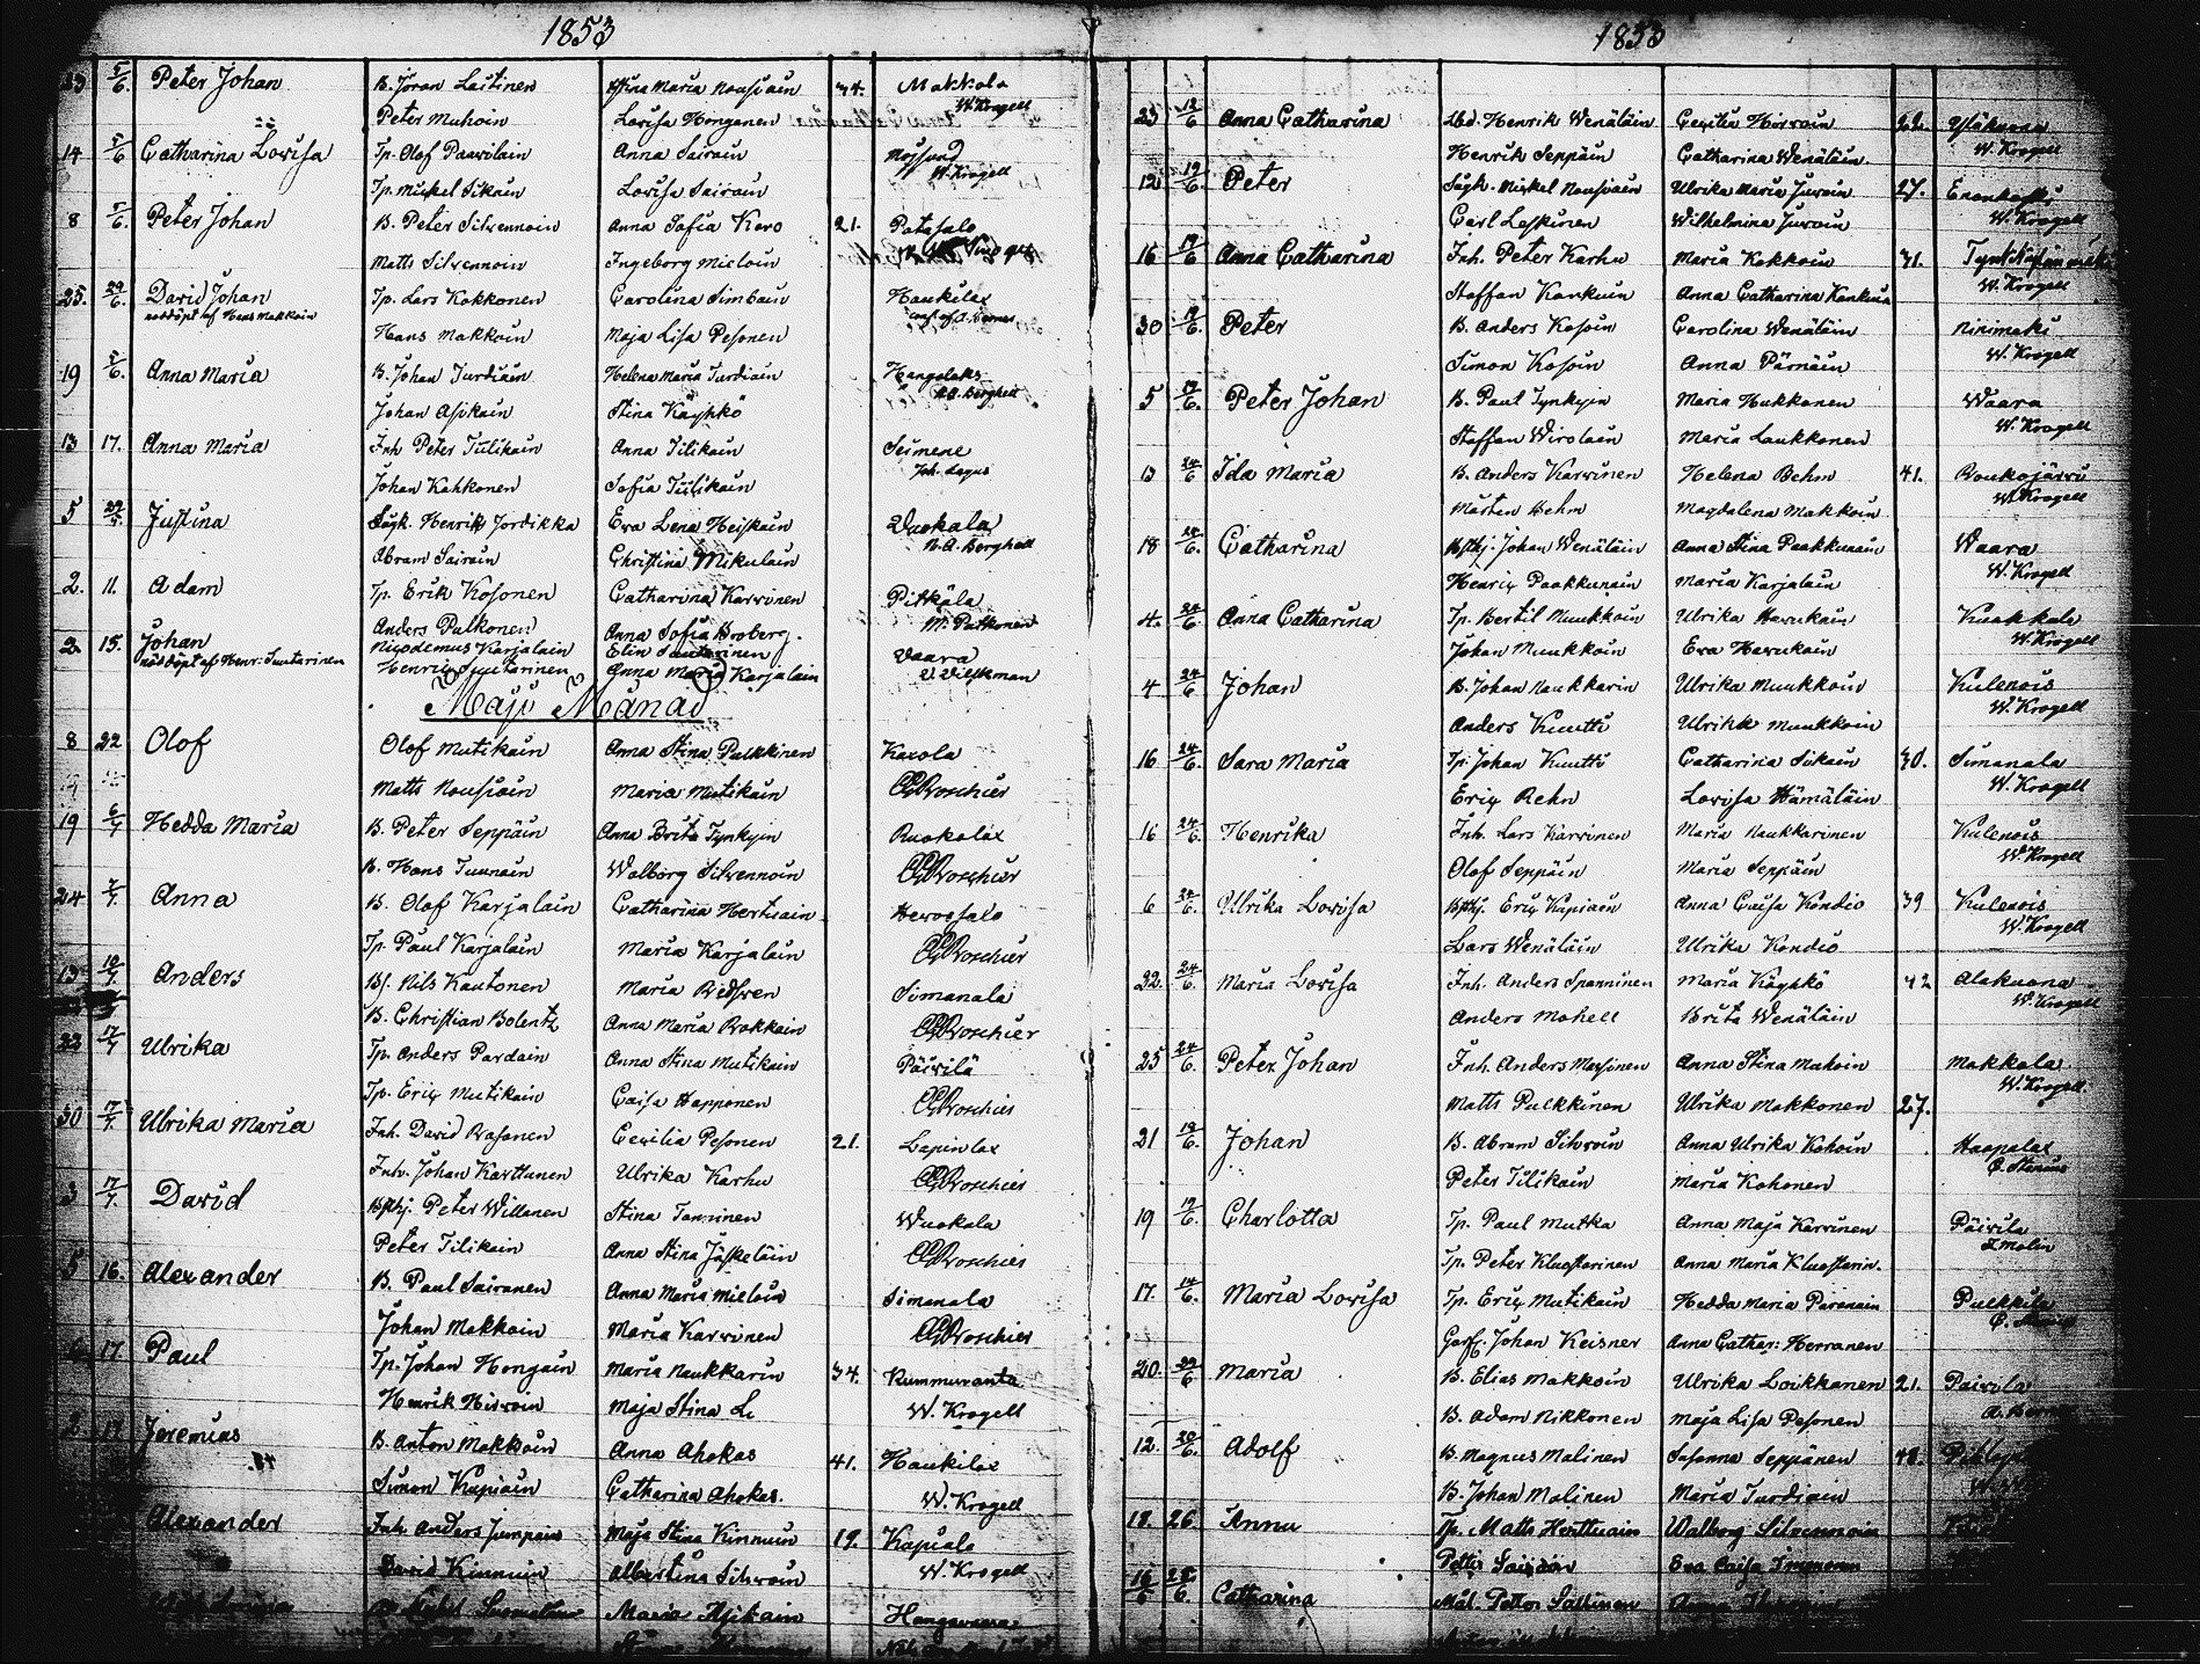 1853
5/6. Peter Johan B. Jöran Laitinen Stina Maria Nousiain 34. Makkola
W. Krogell
Peter Muhoin Lovisa Honganen
14 5/6 Catharina Lovisa Tp. Olof Paavilain Anna Sairain
W. Krogell
Tp. Mickel Sikain Lovisa Sairain
8 5/6. Peter Johan B. Peter Silvennoin Anna Sofia Koro 21. Patasalo
Matts Silvennoin Ingeborg Mieloin
25. 29/6. David Johan Tp. Lars Kokkonen Carolina Simbain Haukilax
nöddöpt af Hans Makkoin
Hans Makkoin Maja Lisa Pesonen
19 5/6. Anna Maria B. Johan Turdiain Helena Maria Turdiain Hangolaks
Johan Asikain Stina Käyhkö
13 17. Anna Maria Inh Peter Tiilikain Anna Tilikain Seimene
Joh. Lagus
Johan Kahkonen Sofia Tiilikain
5 Justina Sågk. Henrik Jordikka Eva Lena Heiskain Vuokala
N. A. Berghell
Abram Sairain Christina Mikulain
2. 11. Adam Tp. Erik Kosonen Catharina Karvinen Pitkälä
Anders Pulkonen Anna Sofia Broberg.
2 15. Johan Nicodemus Karjalain Elin Suutarinen Vaara
nöddöpt af Henr: Suutarinen Henric Suutarinen Anna Maria Karjalain
Maji Månad
8 22 Olof Olof Mutikain Anna Stina Pulkkinen Karola
Matts Nousiain Maria Mutikain Boschier
19 6/7 Hedda Maria B. Peter Seppäin Anna Brita Tynkyin Ruokolax
B. Hans Tuunain Walborg Silvennoin Boschier
24 7/7. Anna B. Olof Karjalain Catharina Hertuain
Tp. Paul Karjalain Maria Karjalain Boschier
13 10/7. Anders Bf. Nils Kautonen Maria Simanala
B. Christian Bolentz Anna Maria Rokkain Boschier
17/7 Ulrika Tp. Anders Pardain Anna Stina Mutikain Päivilä
Tp. Eric Mutikain Caisa Happonen Boschier
30 17/7. Ulrika Maria Inh. David Rasanen Cecilia Pesonen 21. Lapinlax
Inh. Johan Karttunen Ulrika Karhu Boschier
3 17/7. David Bsthj. Peter Willanen Stina Tanninen Wuokala
Peter Tilikain Anna Stina Jäskeläin Boschier
5 16. Alexander B. Paul Sairanen Anna Maria Mieloin Simanala
Johan Makkoin Maria Karvinen Boschier
17 Paul Tp. Johan Hongain Maria Naukkarin 34. Kummuranta
Henrik Hirvoin Maja Stina W. Krogell
2 17 Jeremias B. Anton Makkoin Anna Ahokas 41. Haukilax
Simon Kupiain Catharina Ahokas. W. Krogell
Alexander Inh. Anders Maja Stina Kinnuin 19. Kapiala
David Kinnuin Albertina Silvoin W. Krogell
Maria Asikain Hangavaara
1853
23 12/6 Anna Catharina Lbd. Henrik Wenäläin Cecilia Hirvoin 22.
W. Krogell
Henrik Seppäin Catharina Wenäläin
12 19/6. Peter Sågk. Mickel Nousiain Ulrika Maria Juvoin 27. Enonkoski
W. Krogell
Carl Leskinen Wilhelmina Juvoin
16 19/6 Anna Catharina Inh. Peter Karhu Maria Kokkoin 31.
W. Krogell
Staffan Kankuin Anna Catharina Kankuin
30 19/6. Peter B. Anders Kosoin Carolina Wenäläin Niinimäki
W. Krogell
Simon Kosoin Anna Pärnäin
5 19/6. Peter Johan B. Paul Tynkyin Maria Hukkanen Waara
W. Krogell
Staffan Wirolain Maria Laukkonen
13 24/6 Ida Maria B. Anders Karvinen Helena Behm 41. Roukojärvi
W. Krogell
Mårten Behm Magdalena Makkoin
18 24/6. Catharina Bsthj. Johan Wenäläin Anna Stina Paakkunain Waara
W. Krogell
Henric Paakkunain Maria Karjalain
4. 24/6. Anna Catharina Tp. Bertil Muukkoin Ulrika Havukain Kuokkala
W. Krogell
Johan Muukkoin Eva Havukain
4 24/6 Johan B. Johan Naukkarin Ulrika Muukkoin Kulenois
W. Krogell
Anders Kuutti Ulrika Muukkoin
16 24/6. Sara Maria Tp. Johan Kuutti Catharina Sikain 30. Simanala
W. Krogell
Eric Rehn Lovisa Hämäläin
16 24/6. Henrika Inh. Lars Karvinen Maria Naukkarinen Kulenois
W. Krogell
Olof Seppäin Maria Seppäin
6 24/6. Ulrika Lovisa Bsthj. Eric Kupiain Anna Caisa Kondio 39 Kulenois
W. Krogell
Lars Wenäläin Ulrika Kondio
22. 24/6. Maria Lovisa Inh. Anders Spanninen Maria Käyhkö 42 Alakuona
W. Krogell
Anders Mohell Brita Wenäläin
25 24/6. Peter Johan Inh. Anders Massinen Anna Stina Muhoin Makkola
W. Krogell
Matts Pulkkinen Ulrika Makkonen 27.
21 19/6. Johan B. Abram Silvoin Anna Ulrika Kohoin Haapalax
Peter Tilikain Maria Kohonen
19 19/6. Charlotta Tp. Paul Mutka Anna Maja Karvinen Päivilä
I. Molin
Tp. Peter Kluostarinen Anna Maria Kluostarin.
17. 14/6. Maria Lovisa Tp. Eric Mutikain Hedda Maria Paronain Pulkkila
Johan Keisner Anna Cathar: Herranen
20. 29/6 Maria B. Elias Makkoin Ulrika Loikkanen 21. Päivilä
B. Adam Nikkonen Maja Lisa Pesonen
12. 20/6. Adolf B. Magnus Malinen Susanna Seppänen 48.
B. Johan Malinen Maria Turdiain
18. 26. Anna Tp. Matts Herttuain Walborg Silvennoin
Petter Sairain Eva Caisa Immonen
16/6 28/6 Catharina Mål. Petter Sallinen Anna